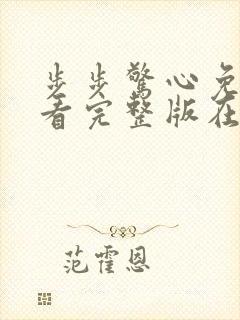 步步驚心免
看完整版在
范霍恩